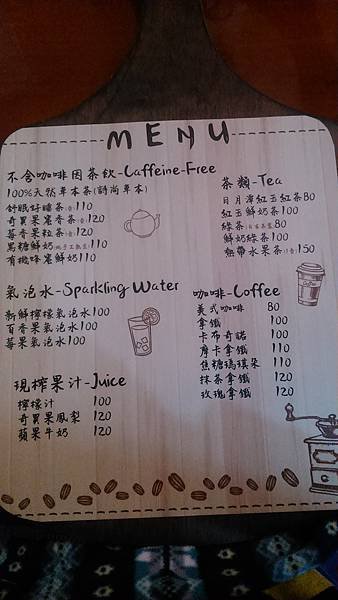 MENU
不含咖啡因茶飲-Caffeine-Free
100%天然草本茶(詩尚草本)
舒眠好睡茶(壺)110
奇異果蜜香茶(壺)120
莓香果粒茶(壺)120
黑糖鮮奶 110
有機蜂蜜鮮奶110
氣泡水-Sparkling Water
新鮮檸檬氣泡水100
百香果氣泡水100
莓果氣泡水100
現榨果汁-Juice
檸檬汁 100
奇異果鳳梨 120
蘋果牛奶 120
茶類-Tea
日月潭紅玉紅茶80
紅玉鮮奶茶100
綠茶 80
鮮奶綠茶100
熱帶水果茶(壺)150
咖啡-Coffee
美式咖啡 80
拿鐵 100
卡布奇諾 100
摩卡拿鐵 110
焦糖瑪琪朵 110
抹茶拿鐵 120
玫瑰拿鐵 120